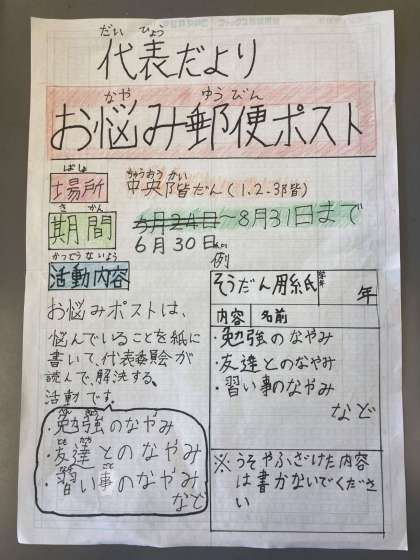 だい ひょう
代表だより
なや ゆうびん
お悩み郵便ポスト
ばしょ
場所
ちゅうおう かい
中央階だん(1.2.3階)
き かん
期間
5月24日～8月31日まで
6月30日
かつどう ないよう
活動内容
お悩みポストは、
悩んでいることを紙に
書いて、代表委員会が
読んで、解決する。
活動です。
・勉強のなやみ
・友達とのなやみ
・習い事のなやみ
など
例
そうだん用紙
年
内容 名前
・勉強のなやみ
・友達とのなやみ
・習い事のなやみ
など
※うそやふざけた内容
は書かないでくださ
い